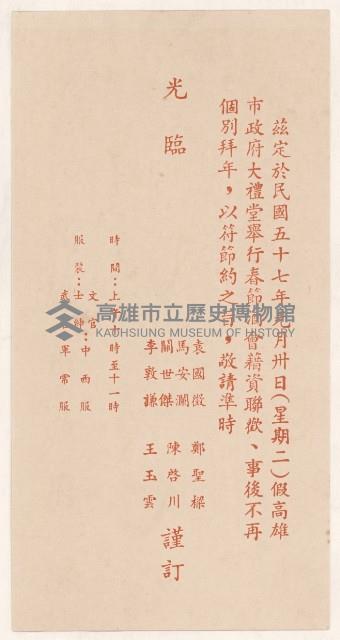 茲定於民國五十七年元月卅日(星期二)假高雄
市政府大禮堂舉行春節酒會藉資聯歡、事後不再
個別拜年，以符節約之旨，敬請準時
光臨
袁國徵 鄭聖樑
馬安瀾
關世傑 陳啓川
李敦謙 王玉雲
謹訂
時間：上午十時至十一時
服裝：文官
士紳：中西服
武官：軍常服
高雄市立歷史博物館
KAOHSIUNG MUSEUM OF HISTORY